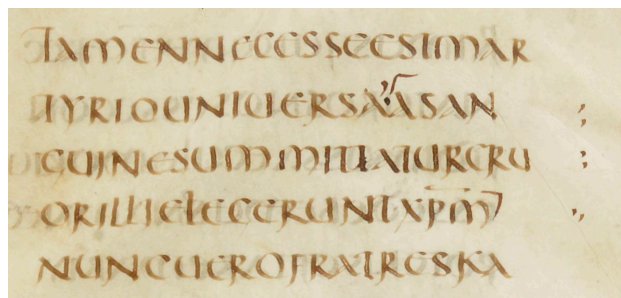 TAMENNECESSEESTMAR
TYRIOUNIUERSAASAN
GUINESUMMITTATURCRU
ORIILLIELEGERUNTXPM
NUNCUEROFRATRESKA